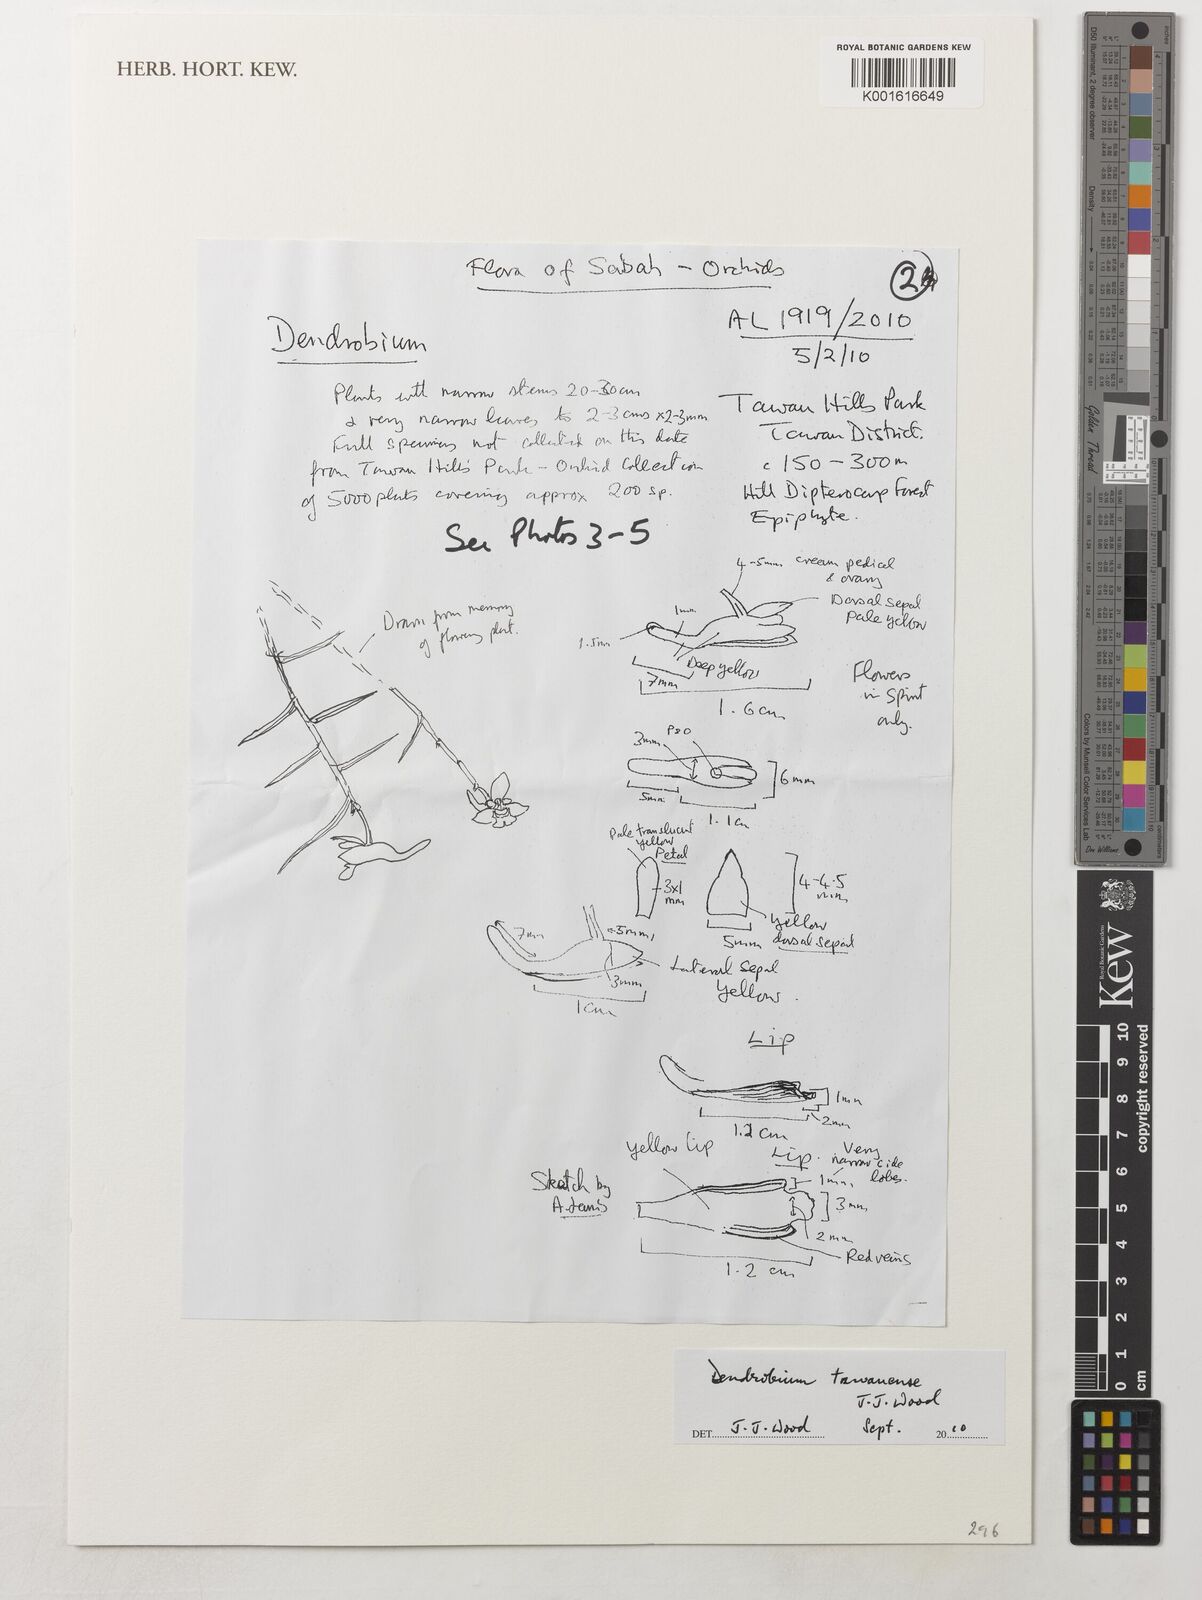 HERB. HORT. KEW.
ROYAL BOTANIC GARDENS KEW
K001616649
Flora of Sabah - Orchids
2
Dendrobium
AL 1919/2010
5/2/10
Plants with narrow stems 20-30cm
& very narrow leaves to 2-3 cms x 2-3mm
Full specimens not collected on this date
from Tawau Hills Park - Orchid Collection
of 5000 plants covering approx 200 sp.
See Photos 3-5
Tawau Hills Park
Tawau District.
c 150-300m
Hill Dipterocarp Forest
Epiphyte.
4-5mm cream pedical
& ovary
Dorsal sepal
Pale yellow
1mm
1.5mm
Deep yellow
7mm
1.6cm
Flowers
in spirit
only.
Drawn from memory
of flowering plant.
P&O
3mm
6mm
5mm
1.1cm
Pale translucent
yellow
Petal
3x1
mm
4-4.5
mm
5mm
Yellow
dorsal sepal
7mm
5mm
3mm
1cm
Lateral sepal
Yellow.
Lip
1mm
2mm
1.2 cm
Yellow Lip
Lip.
Very
narrow side
lobes.
1mm
3mm
2mm
Red veins
1.2 cm
Sketch by
A. Lamb
Dendrobium tawauense
J.J. Wood
DET. J.J. Wood Sept. 2010
296
Kew
Royal Botanic Gardens
copyright reserved
0 1 2 3 4 5 6 7 8 9 10
cm
inches
D50 Illuminant, 2 degree observer
Density
Golden Thread
Colors by Munsell Color Services Lab
Don Williams